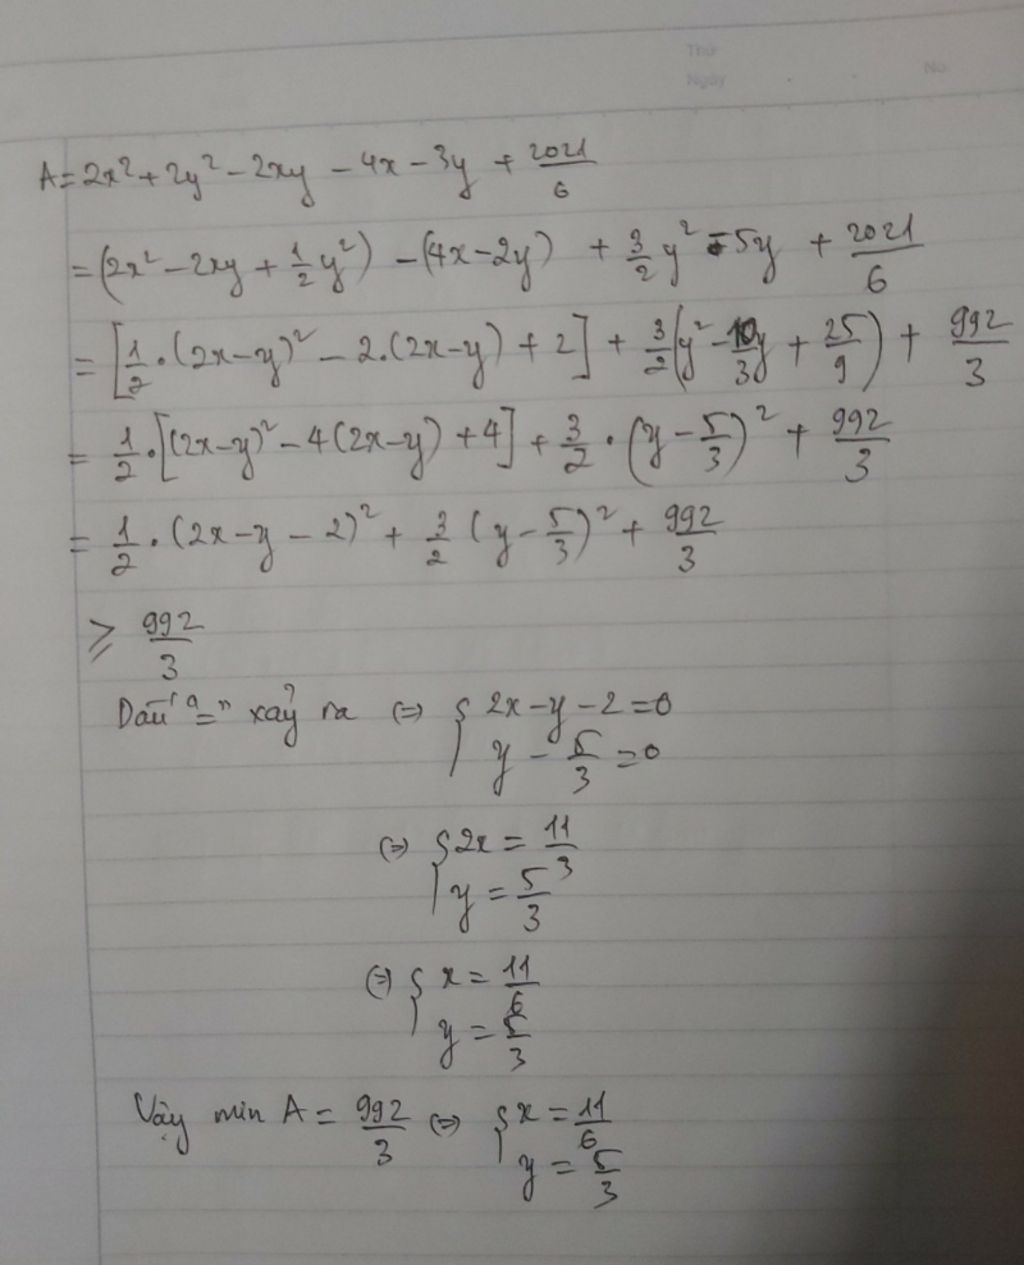 Thứ
Ngày
No
A = 2x² + 2y² - 2xy - 4x - 3y + 2021/6
= (2x² - 2xy + 1/2 y²) - (4x - 2y) + 3/2 y² - 5y + 2021/6
= [1/2 . (2x-y)² - 2.(2x-y) + 2] + 3/2 (y² - 10/3 y + 25/9) + 992/3
= 1/2 . [(2x-y)² - 4(2x-y) + 4] + 3/2 . (y - 5/3)² + 992/3
= 1/2 . (2x - y - 2)² + 3/2 (y - 5/3)² + 992/3
⩾ 992/3
Dấu "=" xảy ra ⇔ { 2x - y - 2 = 0
y - 5/3 = 0
⇔ { 2x = 11/3
y = 5/3
⇔ { x = 11/6
y = 5/3
Vậy min A = 992/3 ⇔ { x = 11/6
y = 5/3